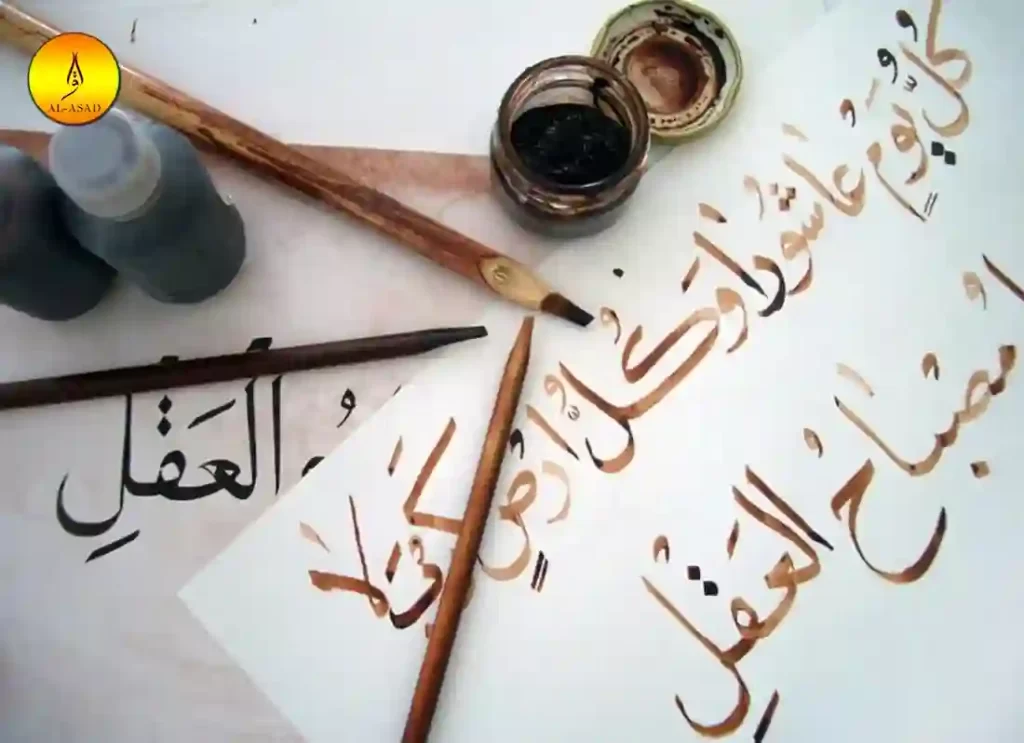 AL-ASAD
كُلُّ يَوْمٍ عاشُورا وَكُلُّ اَرْضٍ كَربَلا
مِصْباحُ العَقْلِ
العَقْلِ